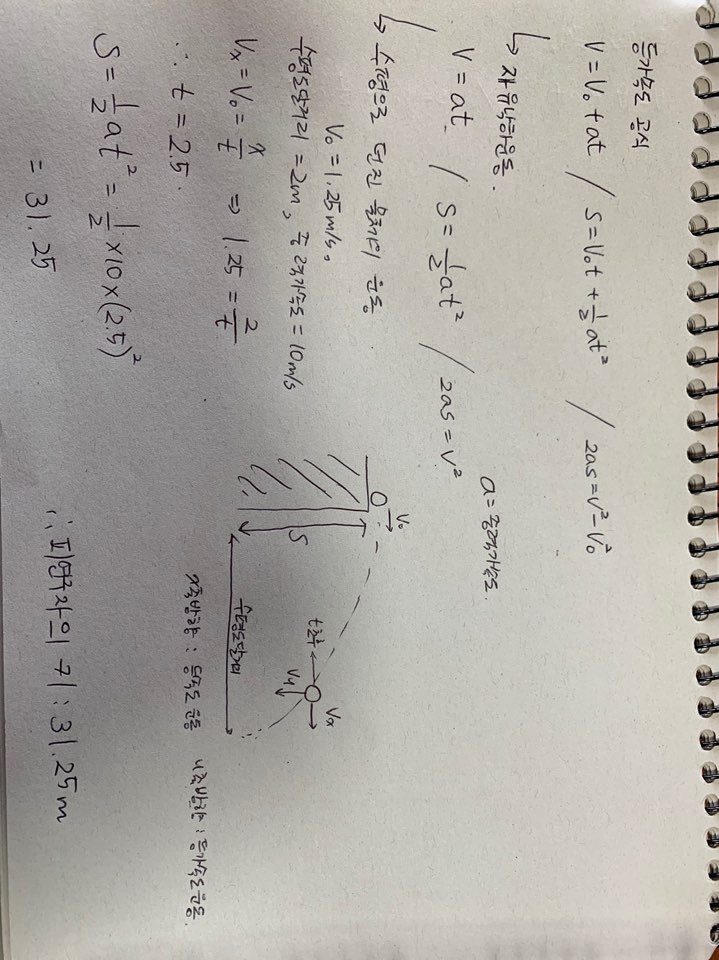 등가속도 공식
V = V₀ + at / S = V₀t + ½at² / 2as = V² - V₀²
↳ 자유낙하운동.
a = 중력가속도.
V = at / S = ½at² / 2as = V²
↳ 수평으로 던진 물체의 운동
V₀ = 1.25m/s.
수평도달거리 = 2m, 중력가속도 = 10m/s
Vx = V₀ = x/t ⇒ 1.25 = 2/t
∴ t = 2.5.
S = ½at² = ½ × 10 × (2.5)²
= 31.25
V₀
S
t초후
Vx
Vy
수평도달거리
x축방향 : 등속도 운동 y축방향 : 등가속도운동.
∴ 피해자의 키 : 31.25m